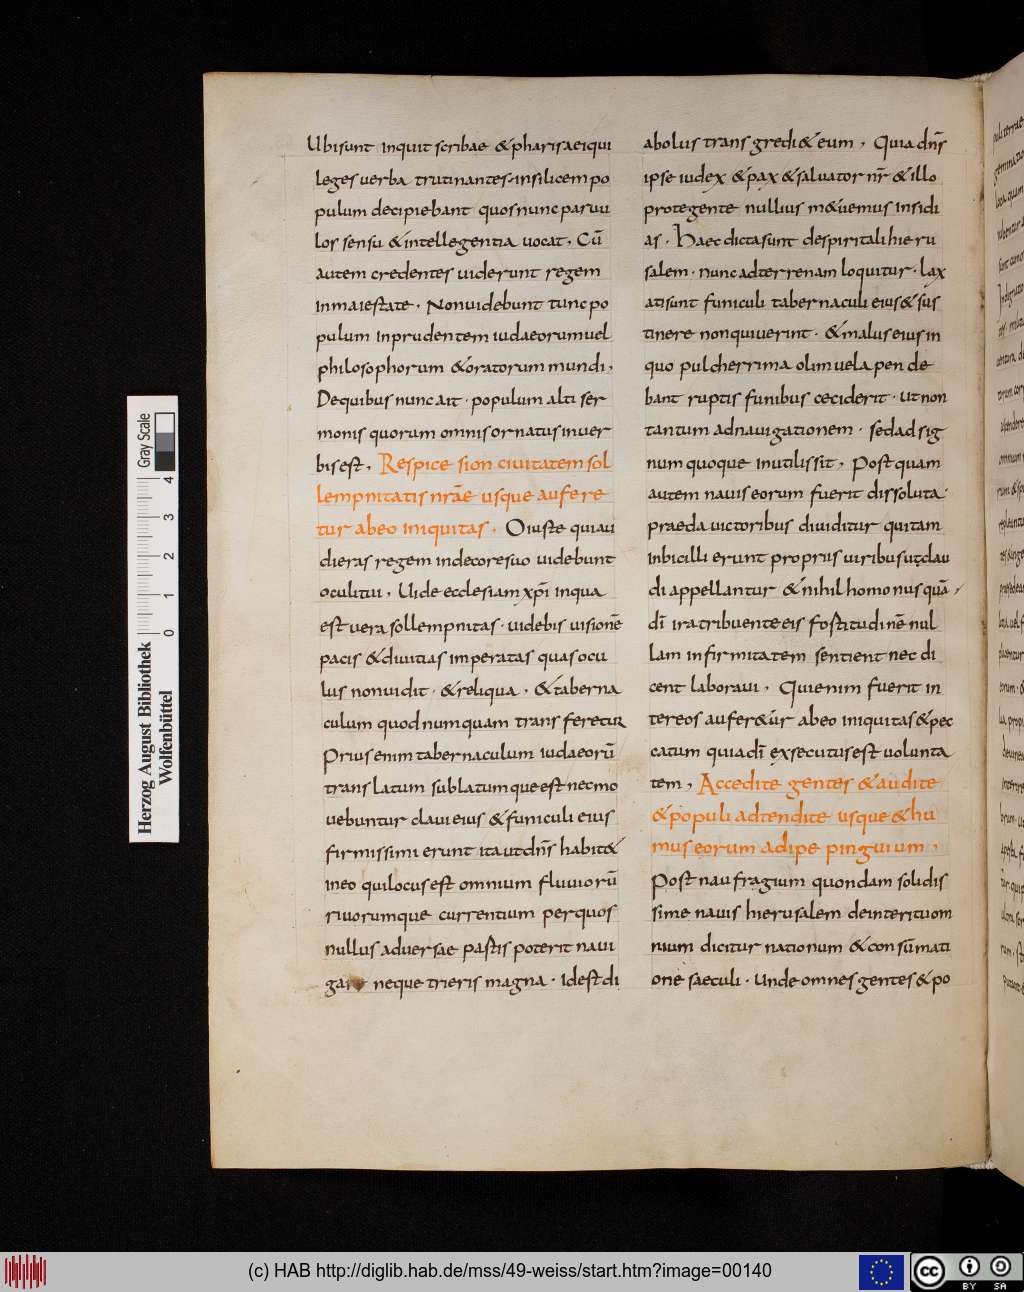 Ubi sunt inquit scribae & pharisaei qui
leges uerba trutinantes. in silicem po
pulum decipiebant quos nunc paruu
los sensu & intellegentia uocat. Cū
autem credentes uiderunt regem
in maiestate. Non uidebunt tunc po
pulum inprudentem iudaeorum uel
philosophorum & oratorum mundi.
De quibus nunc ait. populum alti ser
monis quorum omnis ornatus in uer
bis est. Respice sion ciuitatem sol
lempnitatis nrāe usque aufere
tur ab eo iniquitas. O iuste qui au
dieras regem in decore suo uidebunt
oculi tui. Uide ecclesiam xp̄i in qua
est uera sollempnitas. uidebis uisionē
pacis & diuitias imperatas quas ocu
lus non uidit. & reliqua. & taberna
culum quod numquam transferetur
Prius enim tabernaculum iudaeorū
translatum sublatumque est nec mo
uebuntur claui eius & funiculi eius
firmissimi erunt ita ut dn̄s habit&
in eo qui locus est omnium fluuiorū
riuorumque currentium per quos
nullus aduersae pastis poterit naui
gare neque trieris magna. Id est di
abolus transgredi & eum. Quia dn̄s
ipse iudex & pax & saluator nr̄ & illo
protegente nullius m&uemus insidi
as. Haec dicta sunt de spiritali hieru
salem. nunc ad terrenam loquitur. lax
ati sunt funiculi tabernaculi eius & sus
tinere non quiuerint. & malus eius in
quo pulcherrima olim uela pende
bant ruptis funibus ceciderit. ut non
tantum ad nauigationem. sed ad sig
num quoque inutilis sit. Postquam
autem nauis eorum fuerit dissoluta.
praeda uictoribus diuiditur qui tam
inbicilli erunt propriis uiribus ut clau
di appellantur & nihil homo nus quā
dī ira tribuente eis fostitudinē nul
lam infirmitatem sentient nec di
cent laboraui. Qui enim fuerit in
ter eos aufer&ur ab eo iniquitas & pec
catum quia dī exsecutus est uolunta
tem. Accedite gentes & audite
& populi adtendite usque & hu
mus eorum adipe pinguium.
Post naufragium quondam solidis
sime nauis hierusalem de interitu om
nium dicitur nationum & consūmati
one saeculi. Unde omnes gentes & po
Herzog August Bibliothek
Wolfenbüttel
Gray Scale
0 1 2 3 4
(c) HAB http://diglib.hab.de/mss/49-weiss/start.htm?image=00140
cc
BY SA